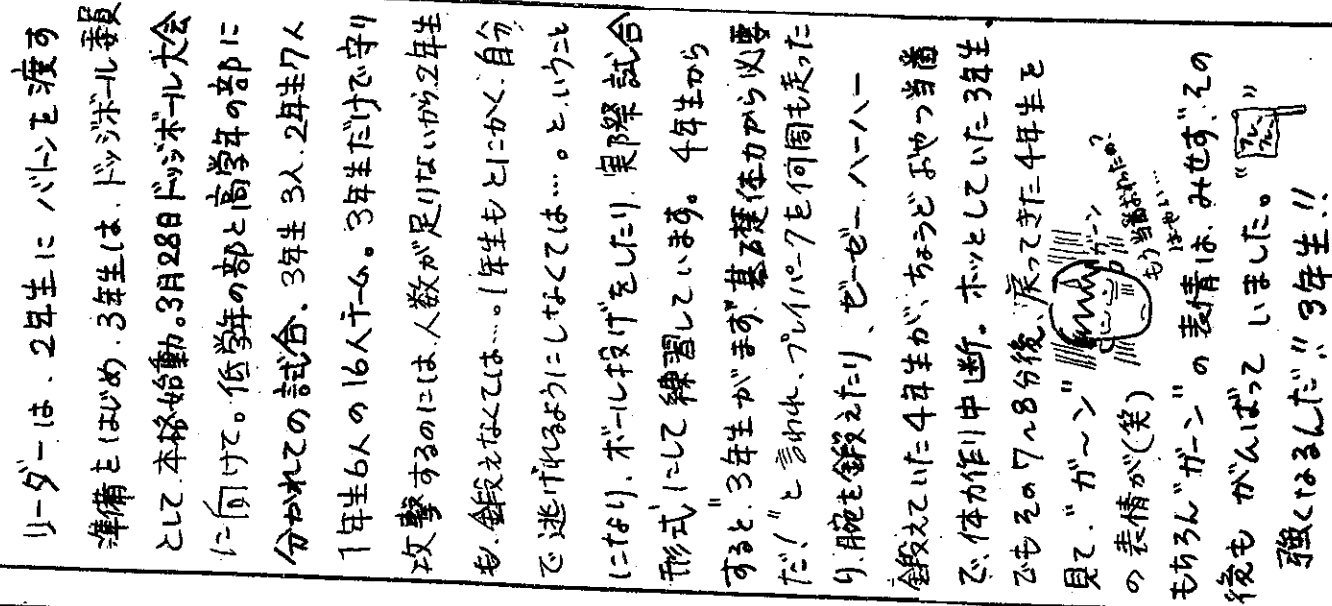 リーダーは、2年生にバトンを渡す
準備をはじめ、3年生は、ドッジボール委員
として本格始動。3月28日ドッジボール大会
に向けて。低学年の部と高学年の部に
分かれての試合、3年生3人、2年生7人
1年生6人の16人チーム。3年生だけで守り
攻撃するのには人数が足りないから、2年生
も、鍛えなくては…。1年生もとにかく、自分
で逃げれるようにしなくては…。ということ
になり、ボール投げをしたり、実際試合
形式にして練習しています。4年生から
すると、"3年生がまず、基礎体力から必要
だ!"と言われ、プレイパークを何周も走った
り、腕も鍛えたり、ゼーゼー、ハーハー
鍛えていた4年生が、ちょうどおやつ当番
で、体力作り中断。ホッとしていた3年生。
でもその7~8分後、戻ってきた4年生を
見て、"ガ~ン"
ガーン
もう当番おわったの?
はやい…
の表情が(笑)
もちろん"ガーン"の表情は、みせず、その
後も がんばって いました。"フレーフレー"
強くなるんだ!! 3年生!!